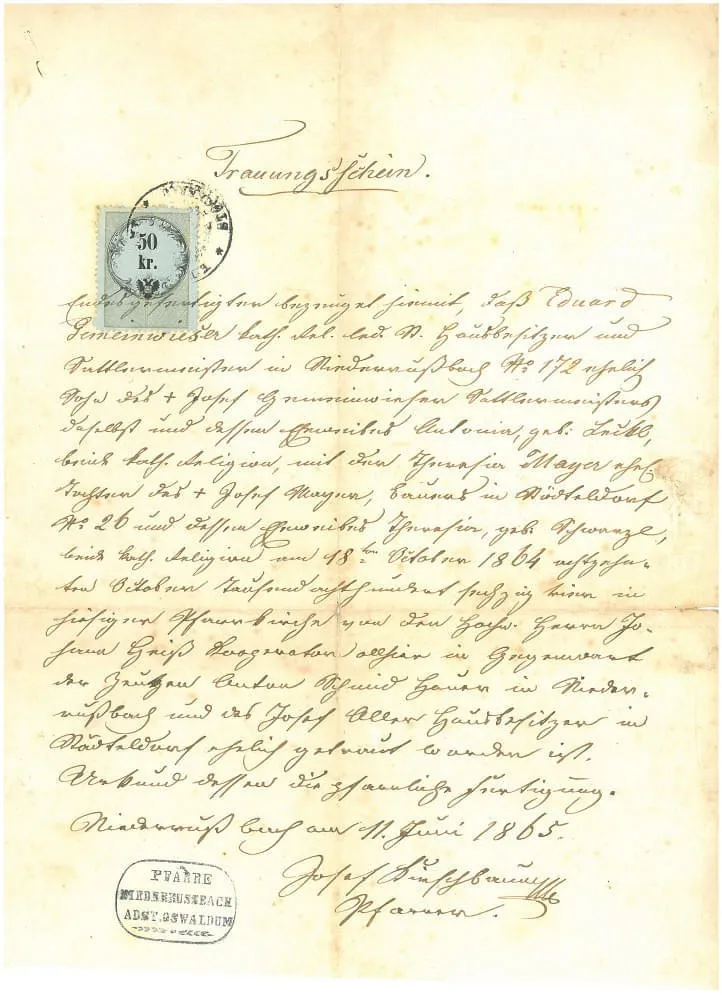 Trauungsschein.
50
kr.
Endesgefertigter bezeuget hiemit, daß Eduard
Gemeinwieser kath. Rel. led. St. Hausbesitzer und
Sattlermeister in Niederrußbach No 172 ehelich
Sohn des + Josef Gemeinwieser Sattlermeisters
daselbst und dessen Eheweibes Antonia, geb:
beide kath. Religion, mit der Theresia Mayer ehel.
Tochter des + Josef Mayer, Bauers in Stödteldorf
No 26 und dessen Eheweibes Theresia, geb: Schwarzl,
beide kath. Religion am 18ten October 1864 achtzehn-
ten October Tausendachthundert sechzig vier in
hiesiger Pfarrkirche von den Hochw. Herrn Jo-
hann Heiß Kooperator allhier in Gegenwart
der Zeugen Anton Schmid Hauer in Nieder-
rußbach und des Josef Aller Hausbesitzer in
Stödteldorf ehelich getraut worden ist.
Urkund dessen die pfarrliche Fertigung.
Niederrußbach am 11. Juni 1865.
Josef Kirschbaum
Pfarrer.
PFARRE
NIEDERRUSSBACH
ADST.OSWALDUM